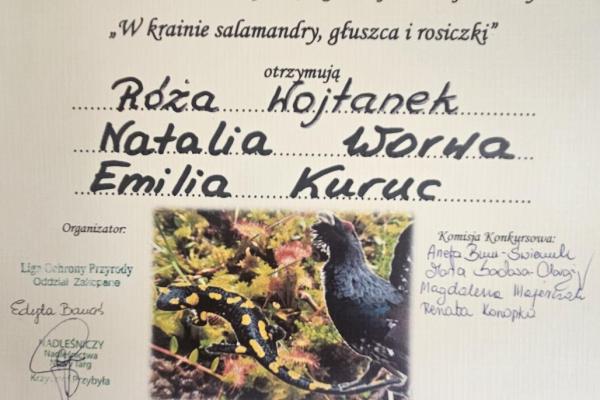 „W krainie salamandry, głuszca i rosiczki”
otrzymują
Róża Wojtanek
Natalia Worwa
Emilia Kuruc
Organizator:
Liga Ochrony Przyrody
Oddział Zakopane
Edyta
NADLEŚNICZY
Nadleśnictwa
Nowy Targ
Krzysztof Przybyła
Komisja Konkursowa:
Aneta
Magdalena Majerczak
Renata Konopka